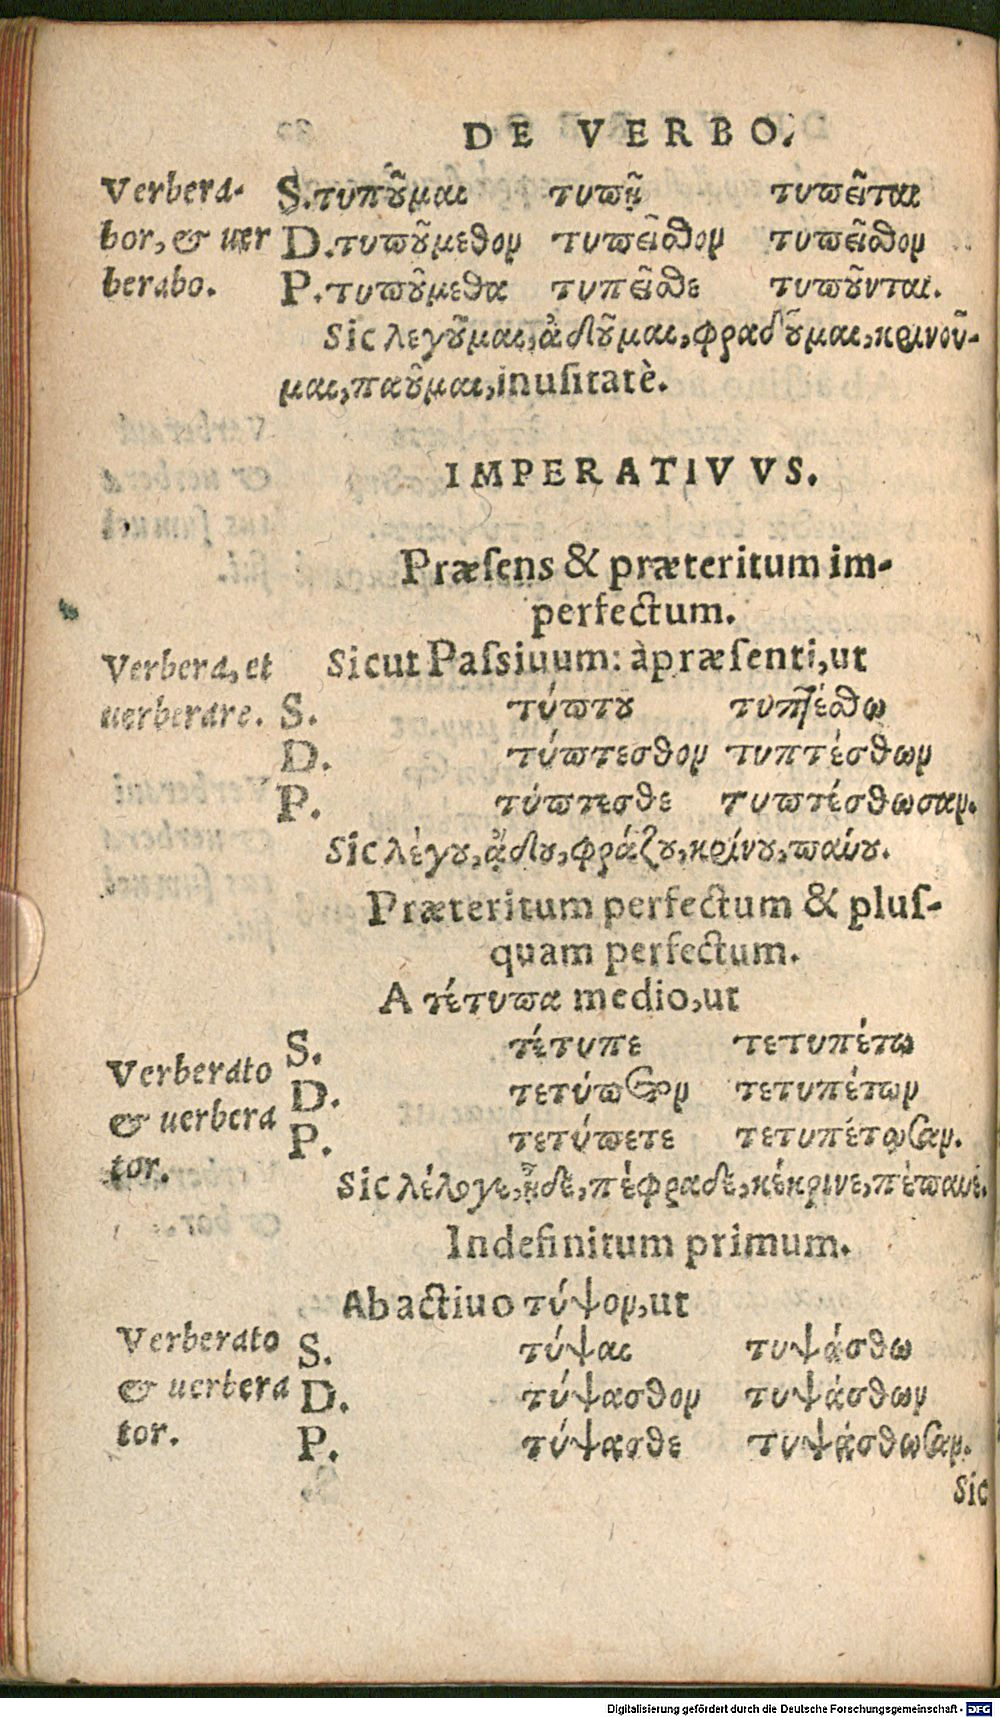 DE VERBO.
Verbera- S. τυποῦμαι τυπῇ τυπεῖται
bor, & uer D. τυπούμεθον τυπεῖσθον τυπεῖσθον
berabo. P. τυπούμεθα τυπεῖσθε τυποῦνται.
Sic λεγοῦμαι, ᾀδοῦμαι, φραδοῦμαι, κρινοῦ-
μαι, παοῦμαι, inuſitatè.
IMPERATIVVS.
Præſens & præteritum im-
perfectum.
Verbera, et Sicut Paſsiuum: à præſenti, ut
uerberare. S. τύπτου τυπτέσθω
D. τύπτεσθον τυπτέσθων
P. τύπτεσθε τυπτέσθωσαν.
Sic λέγου, ᾄδου, φράζου, κρίνου, παύου.
Præteritum perfectum & pluſ-
quam perfectum.
A τέτυπα medio, ut
Verberato S. τέτυπε τετυπέτω
& uerbera D. τετύπετον τετυπέτων
tor. P. τετύπετε τετυπέτωσαν.
Sic λέλογε, ᾖδε, πέφραδε, κέκρινε, πέπαυε.
Indefinitum primum.
Ab actiuo τύψον, ut
Verberato S. τύψαι τυψάσθω
& uerbera D. τύψασθον τυψάσθων
tor. P. τύψασθε τυψάσθωσαν.
Sic
Digitalisierung gefördert durch die Deutsche Forschungsgemeinschaft - DFG